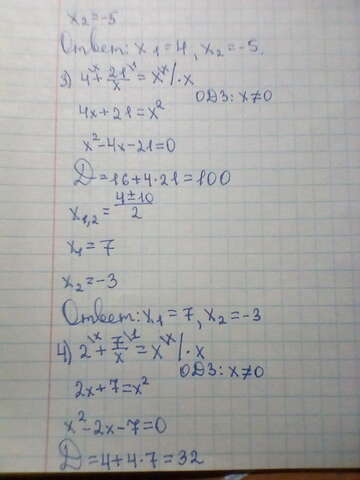 x₂=-5
Ответ: x₁=4, x₂=-5.
3) 4\ˣ + 21/x\¹ = x\ˣ / · x
ОДЗ: x≠0
4x+21=x²
x²-4x-21=0
D=16+4·21=100
x₁,₂= (4±10)/2
x₁=7
x₂=-3
Ответ: x₁=7, x₂=-3
4) 2\ˣ + 7/x\¹ = x\ˣ / · x
ОДЗ: x≠0
2x+7=x²
x²-2x-7=0
D=4+4·7=32